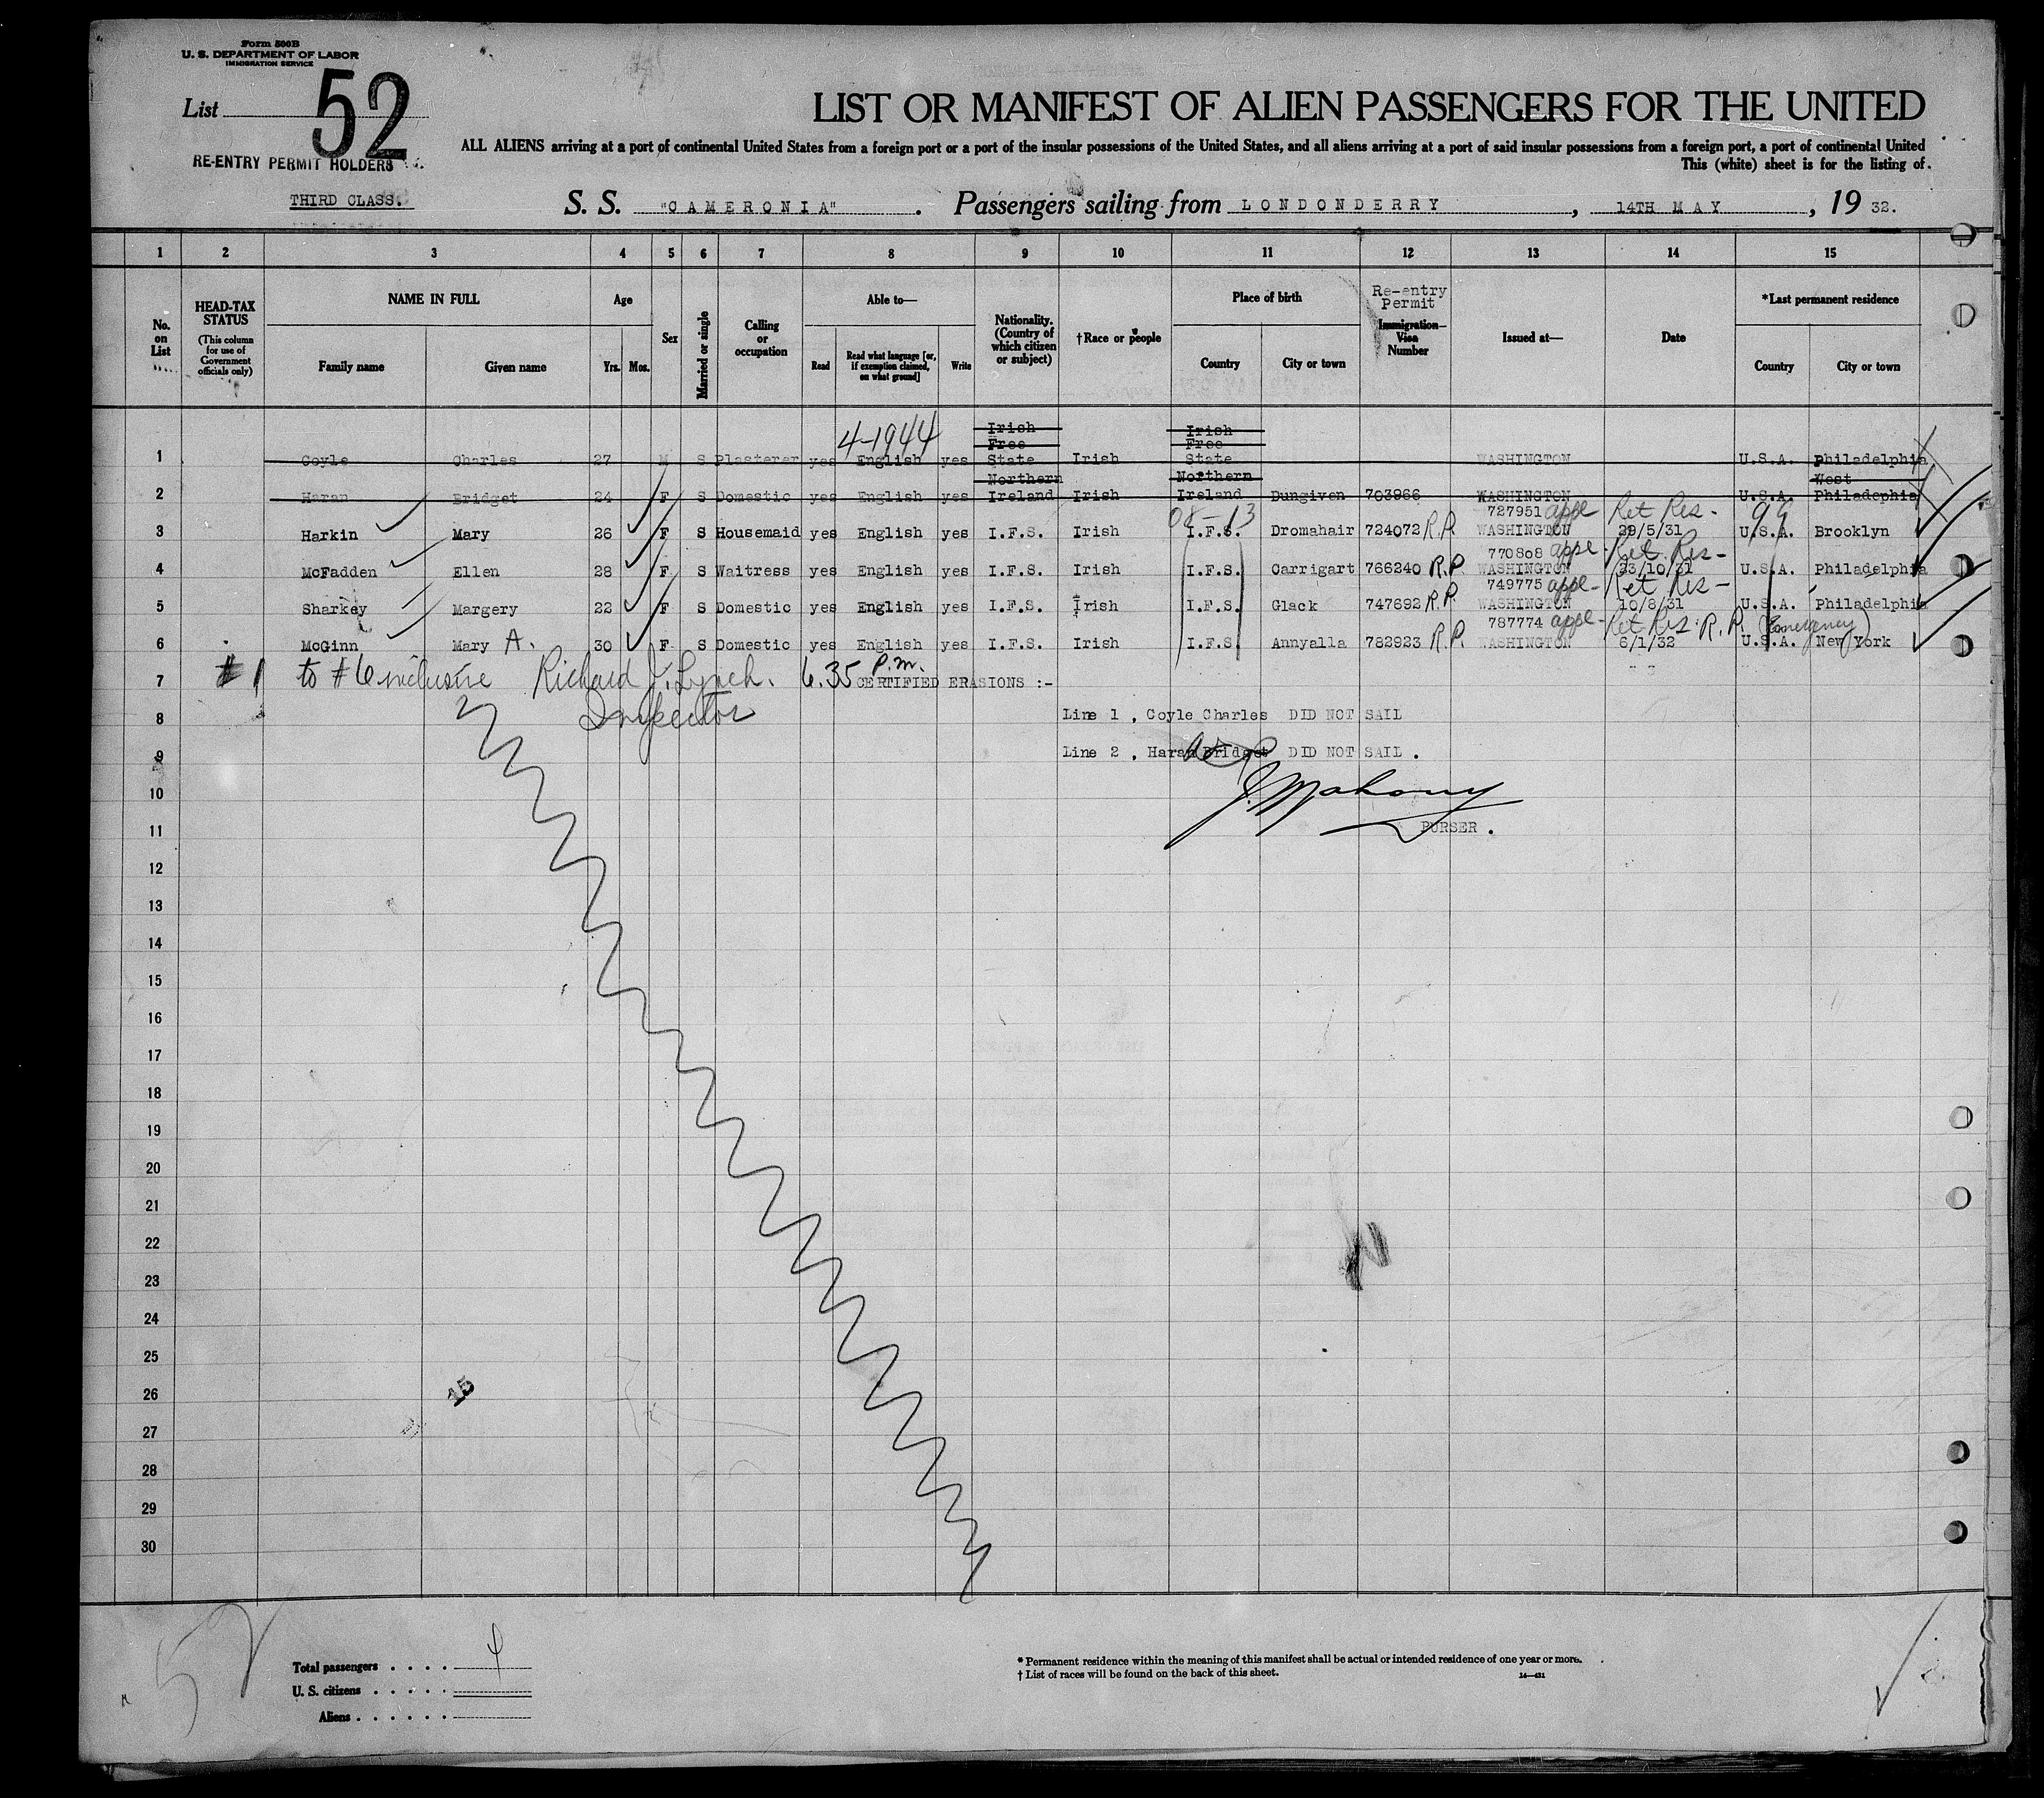 Form 500B
U. S. DEPARTMENT OF LABOR
IMMIGRATION SERVICE
List 52
RE-ENTRY PERMIT HOLDERS
THIRD CLASS.
LIST OR MANIFEST OF ALIEN PASSENGERS FOR THE UNITED
ALL ALIENS arriving at a port of continental United States from a foreign port or a port of the insular possessions of the United States, and all aliens arriving at a port of said insular possessions from a foreign port, a port of continental United
This (white) sheet is for the listing of
S. S. "CAMERONIA". Passengers sailing from LONDONDERRY, 14TH MAY, 19 32.
1 2 3 4 5 6 7 8 9 10 11 12 13 14 15
No. on List
HEAD-TAX STATUS
(This column for use of Government officials only)
NAME IN FULL
Family name Given name
Age
Yrs. Mos.
Sex
Married or single
Calling or occupation
Able to—
Read Read what language [or, if exemption claimed, on what ground] Write
Nationality. (Country of which citizen or subject)
†Race or people
Place of birth
Country City or town
Re-entry Permit
Immigration Visa Number
Issued at—
Date
*Last permanent residence
Country City or town
4-1944
1 Coyle Charles 27 M S Plasterer yes English yes Irish Free State Irish Irish Free State WASHINGTON U.S.A. Philadelphia
2 Haran Bridget 24 F S Domestic yes English yes Northern Ireland Irish Northern Ireland Dungiven 703966 WASHINGTON U.S.A. West Philadephia
08-13 727951 appl- Ret Res- 99
3 Harkin Mary 26 F S Housemaid yes English yes I.F.S. Irish I.F.S. Dromahair 724072 R.P. WASHINGTON 29/5/31 U.S.A. Brooklyn
770808 appl- Ret Res-
4 McFadden Ellen 28 F S Waitress yes English yes I.F.S. Irish I.F.S. Carrigart 766240 R.P. WASHINGTON 23/10/31 U.S.A. Philadelphia
749775 appl- Ret Res-
5 Sharkey Margery 22 F S Domestic yes English yes I.F.S. Irish I.F.S. Glack 747692 R.P. WASHINGTON 10/8/31 U.S.A. Philadelphia
787774 appl- Ret Res. R.P. (Emergency)
6 McGinn Mary A. 30 F S Domestic yes English yes I.F.S. Irish I.F.S. Annyalla 782923 R.P. WASHINGTON 6/1/32 U.S.A. New York
7 #1 to #6 inclusive Richard J. Lynch. 6.35 P.m. CERTIFIED ERASIONS :-
Inspector
8 Line 1 , Coyle Charles DID NOT SAIL
9 Line 2 , Haran Bridget DID NOT SAIL .
10 J. Mahony
11 PURSER .
12
13
14
15
16
17
18
19
20
21
22
23
24
25
26
15
27
28
29
30
52
Total passengers . . . . 4
U. S. citizens . . . . .
Aliens . . . . . .
* Permanent residence within the meaning of this manifest shall be actual or intended residence of one year or more.
† List of races will be found on the back of this sheet.
14—431